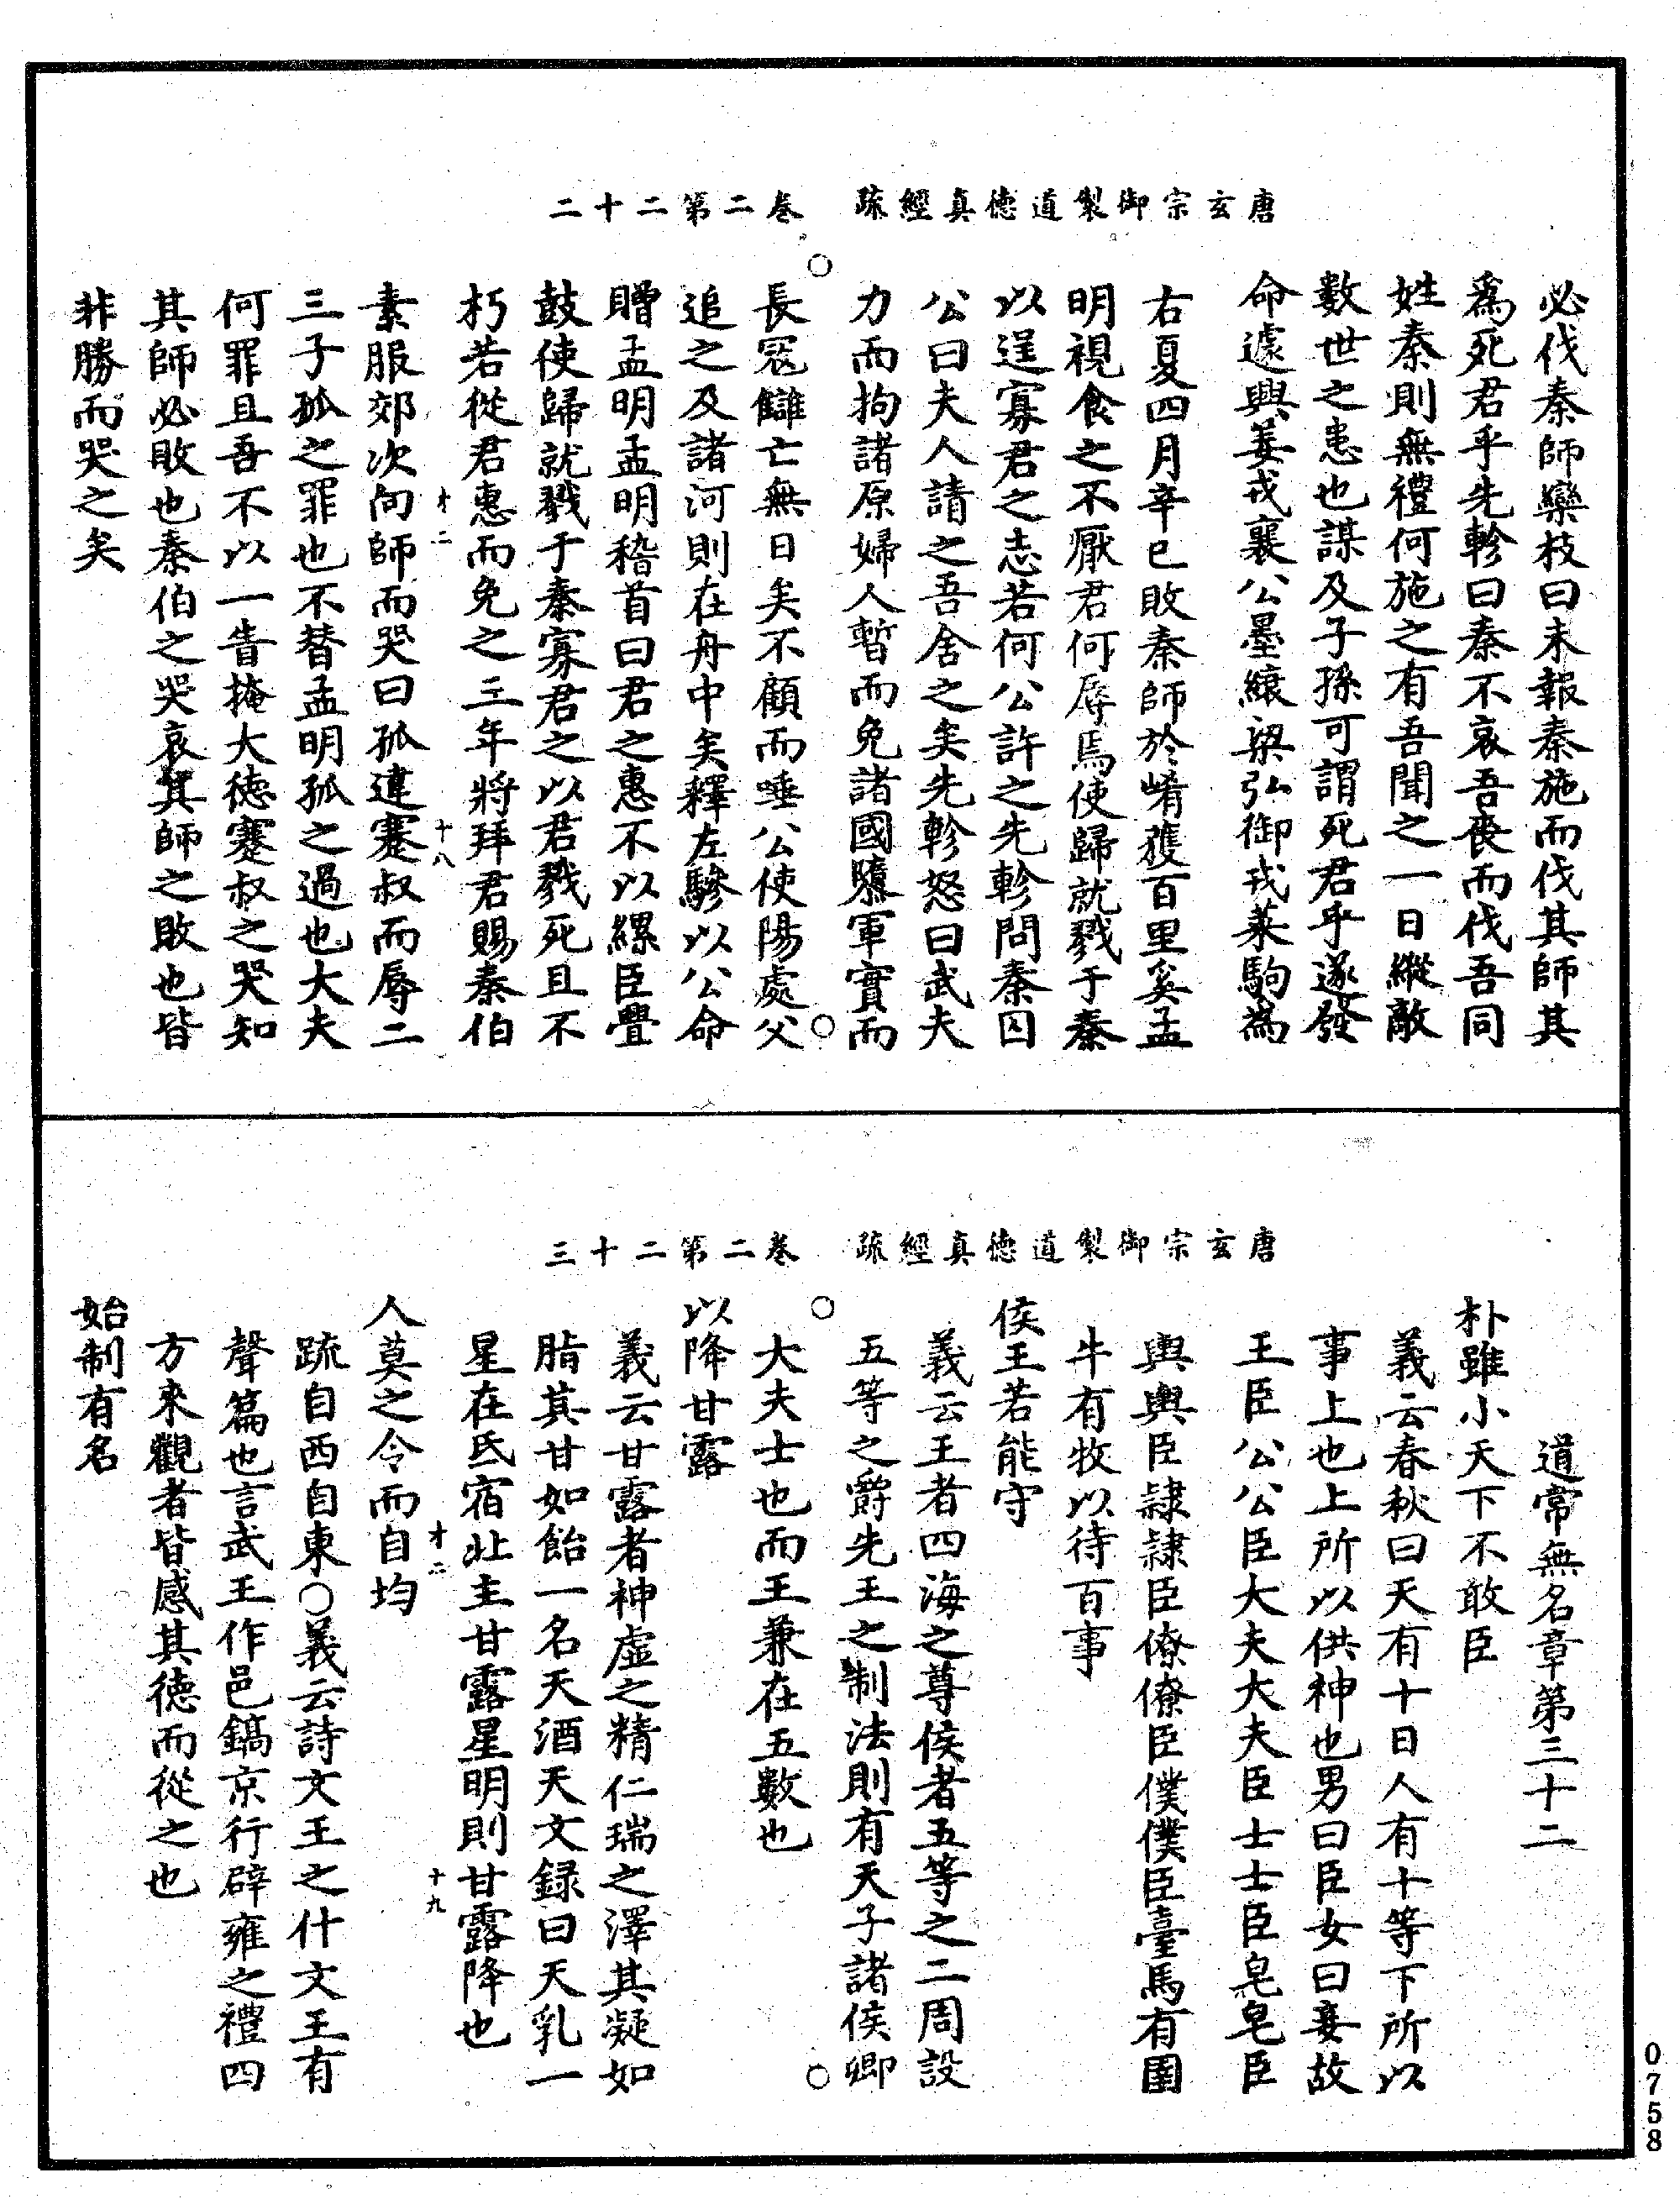 唐玄宗御製道德真經疏 卷二第二十二
必伐秦師欒枝曰未報秦施而伐其師其
為死君乎先軫曰秦不哀吾喪而伐吾同
姓秦則無禮何施之有吾聞之一日縱敵
數世之患也謀及子孫可謂死君乎遂發
命遽興姜戎襄公墨縗梁弘御戎萊駒為
右夏四月辛巳敗秦師於崤獲百里奚孟
明視食之不厭君何辱焉使歸就戮于秦
以逞寡君之志若何公許之先軫問秦囚
公曰夫人請之吾舍之矣先軫怒曰武夫
力而拘諸原婦人暫而免諸國隳軍實而
長寇讎亡無日矣不顧而唾公使陽處父
追之及諸河則在舟中矣釋左驂以公命
贈孟明孟明稽首曰君之惠不以纍臣釁
鼓使歸就戮于秦寡君之以君戮死且不
朽若從君惠而免之三年將拜君賜秦伯
才二 十八
素服郊次向師而哭曰孤違蹇叔而辱二
三子孤之罪也不替孟明孤之過也大夫
何罪且吾不以一眚掩大德蹇叔之哭知
其師必敗也秦伯之哭哀其師之敗也皆
非勝而哭之矣
唐玄宗御製道德真經疏 卷二第二十三
道常無名章第三十二
朴雖小天下不敢臣
義云春秋曰天有十日人有十等下所以
事上也上所以供神也男曰臣女曰妾故
王臣公公臣大夫大夫臣士士臣皂皂臣
輿輿臣隸隸臣僚僚臣僕僕臣臺馬有圉
牛有牧以待百事
侯王若能守
義云王者四海之尊侯者五等之二周設
五等之爵先王之制法則有天子諸侯卿
大夫士也而王兼在五數也
以降甘露
義云甘露者神虛之精仁瑞之澤其凝如
脂其甘如飴一名天酒天文録曰天乳一
星在氐宿北主甘露星明則甘露降也
才二 十九
人莫之令而自均
疏自西自東○義云詩文王之什文王有
聲篇也言武王作邑鎬京行辟雍之禮四
方來觀者皆感其德而從之也
始制有名
0758